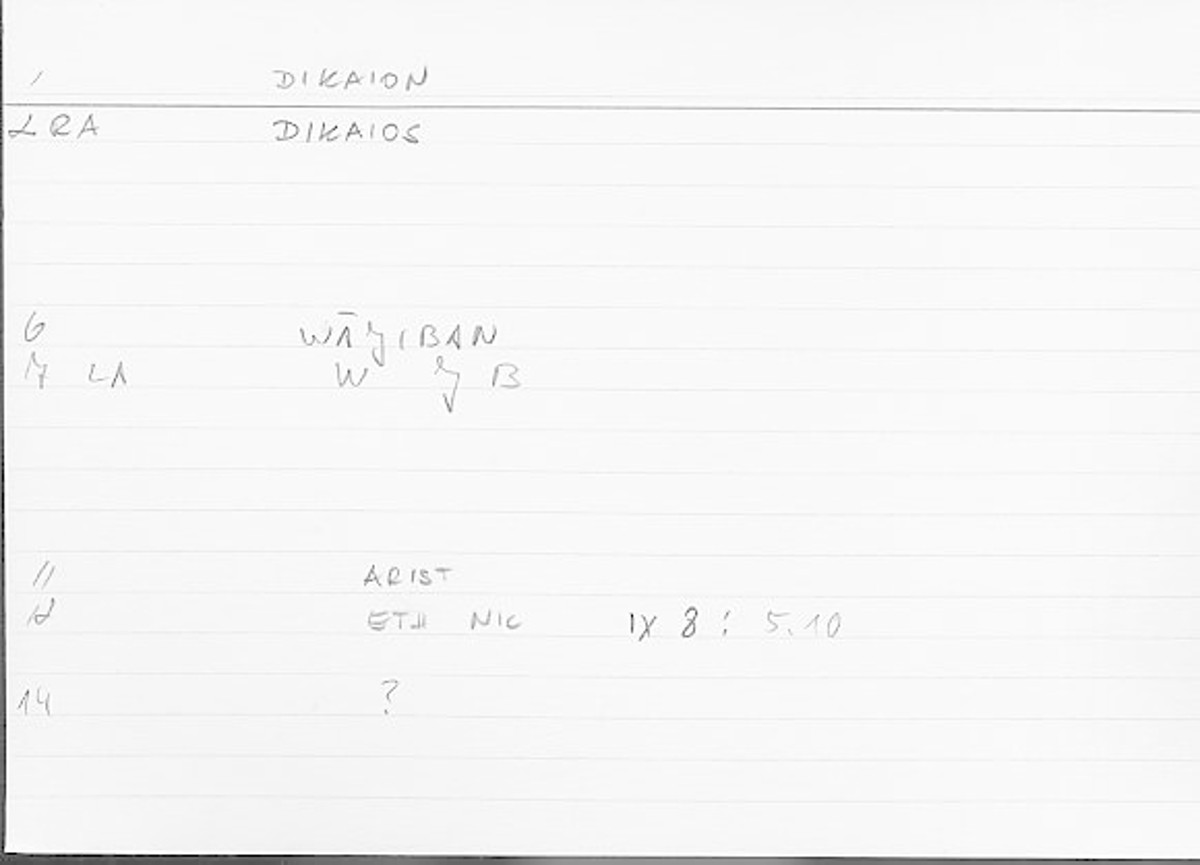 1 DIKAION
2RA DIKAIOS
6 WĀǦIBAN
7 LA W Ǧ B
11 ARIST
12 ETH NIC IX 8 : 5.10
14 ?